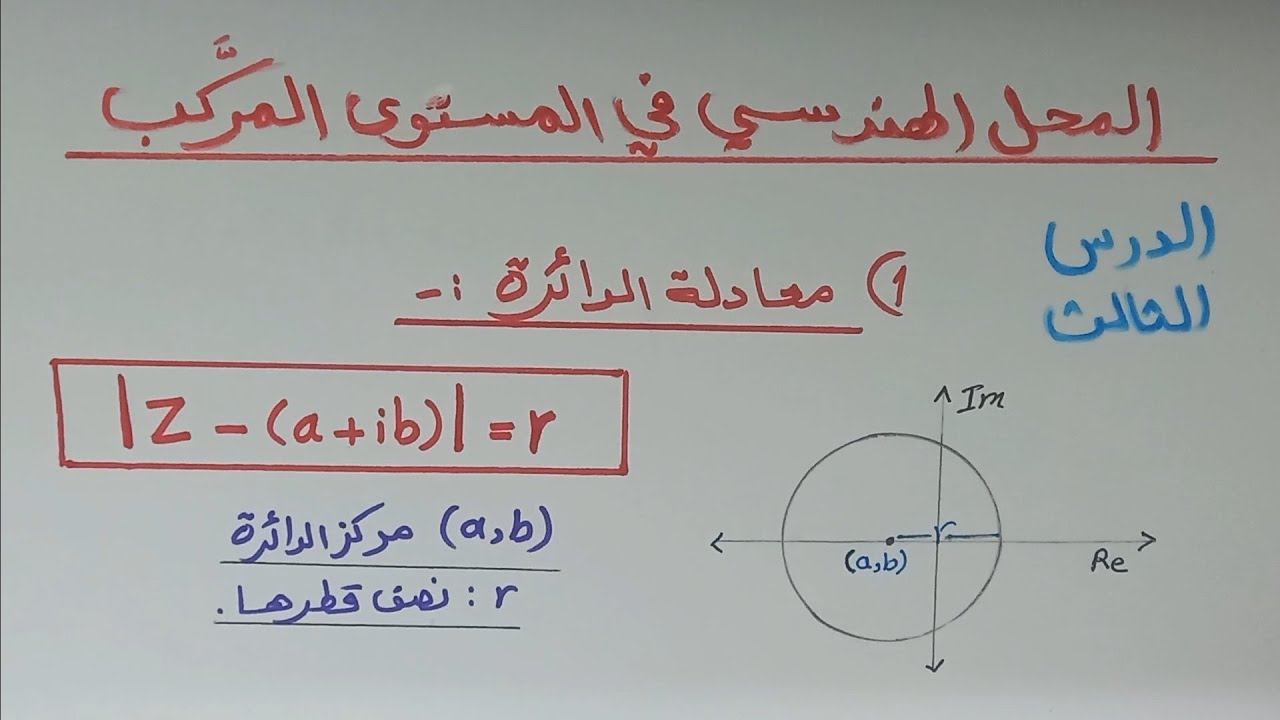 المحل الهندسي في المستوى المركَّب
الدرس
الثالث
1) معادلة الدائرة :-
|Z - (a + ib)| = r
(a,b) مركز الدائرة
r : نصف قطرها.
Im
r
(a,b)
Re